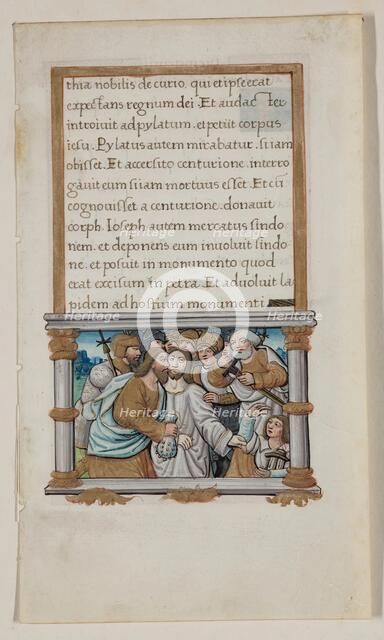 thia nobilis decurio, qui et ipse erat
expectans regnum dei. Et audacter
introiuit ad pylatum. et petiit corpus
iesu. Pylatus autem mirabatur. si iam
obisset. Et accersito centurione. interro
gauit eum si iam mortuus esset. Et cū
cognouisset a centurione. donauit
corph. Ioseph autem mercatus sindo
nem. et deponens eum inuoluit sindo
ne. et posuit in monumento quod
erat excisum in petra. Et aduoluit la
pidem ad hostium monumenti
Heritage
Heritage
Heritage
Heritage
Heritage
Heritage
Heritage
Heritage